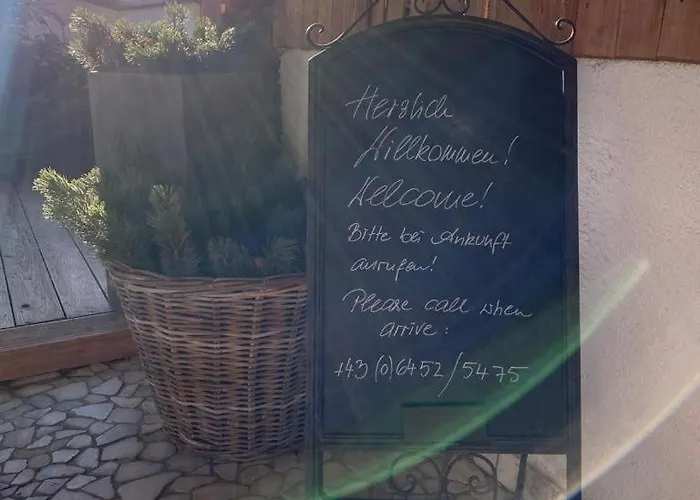 Herzlich
Willkommen!
Welcome!
Bitte bei Ankunft
anrufen!
Please call when
arrive:
+43(0)6452/5475